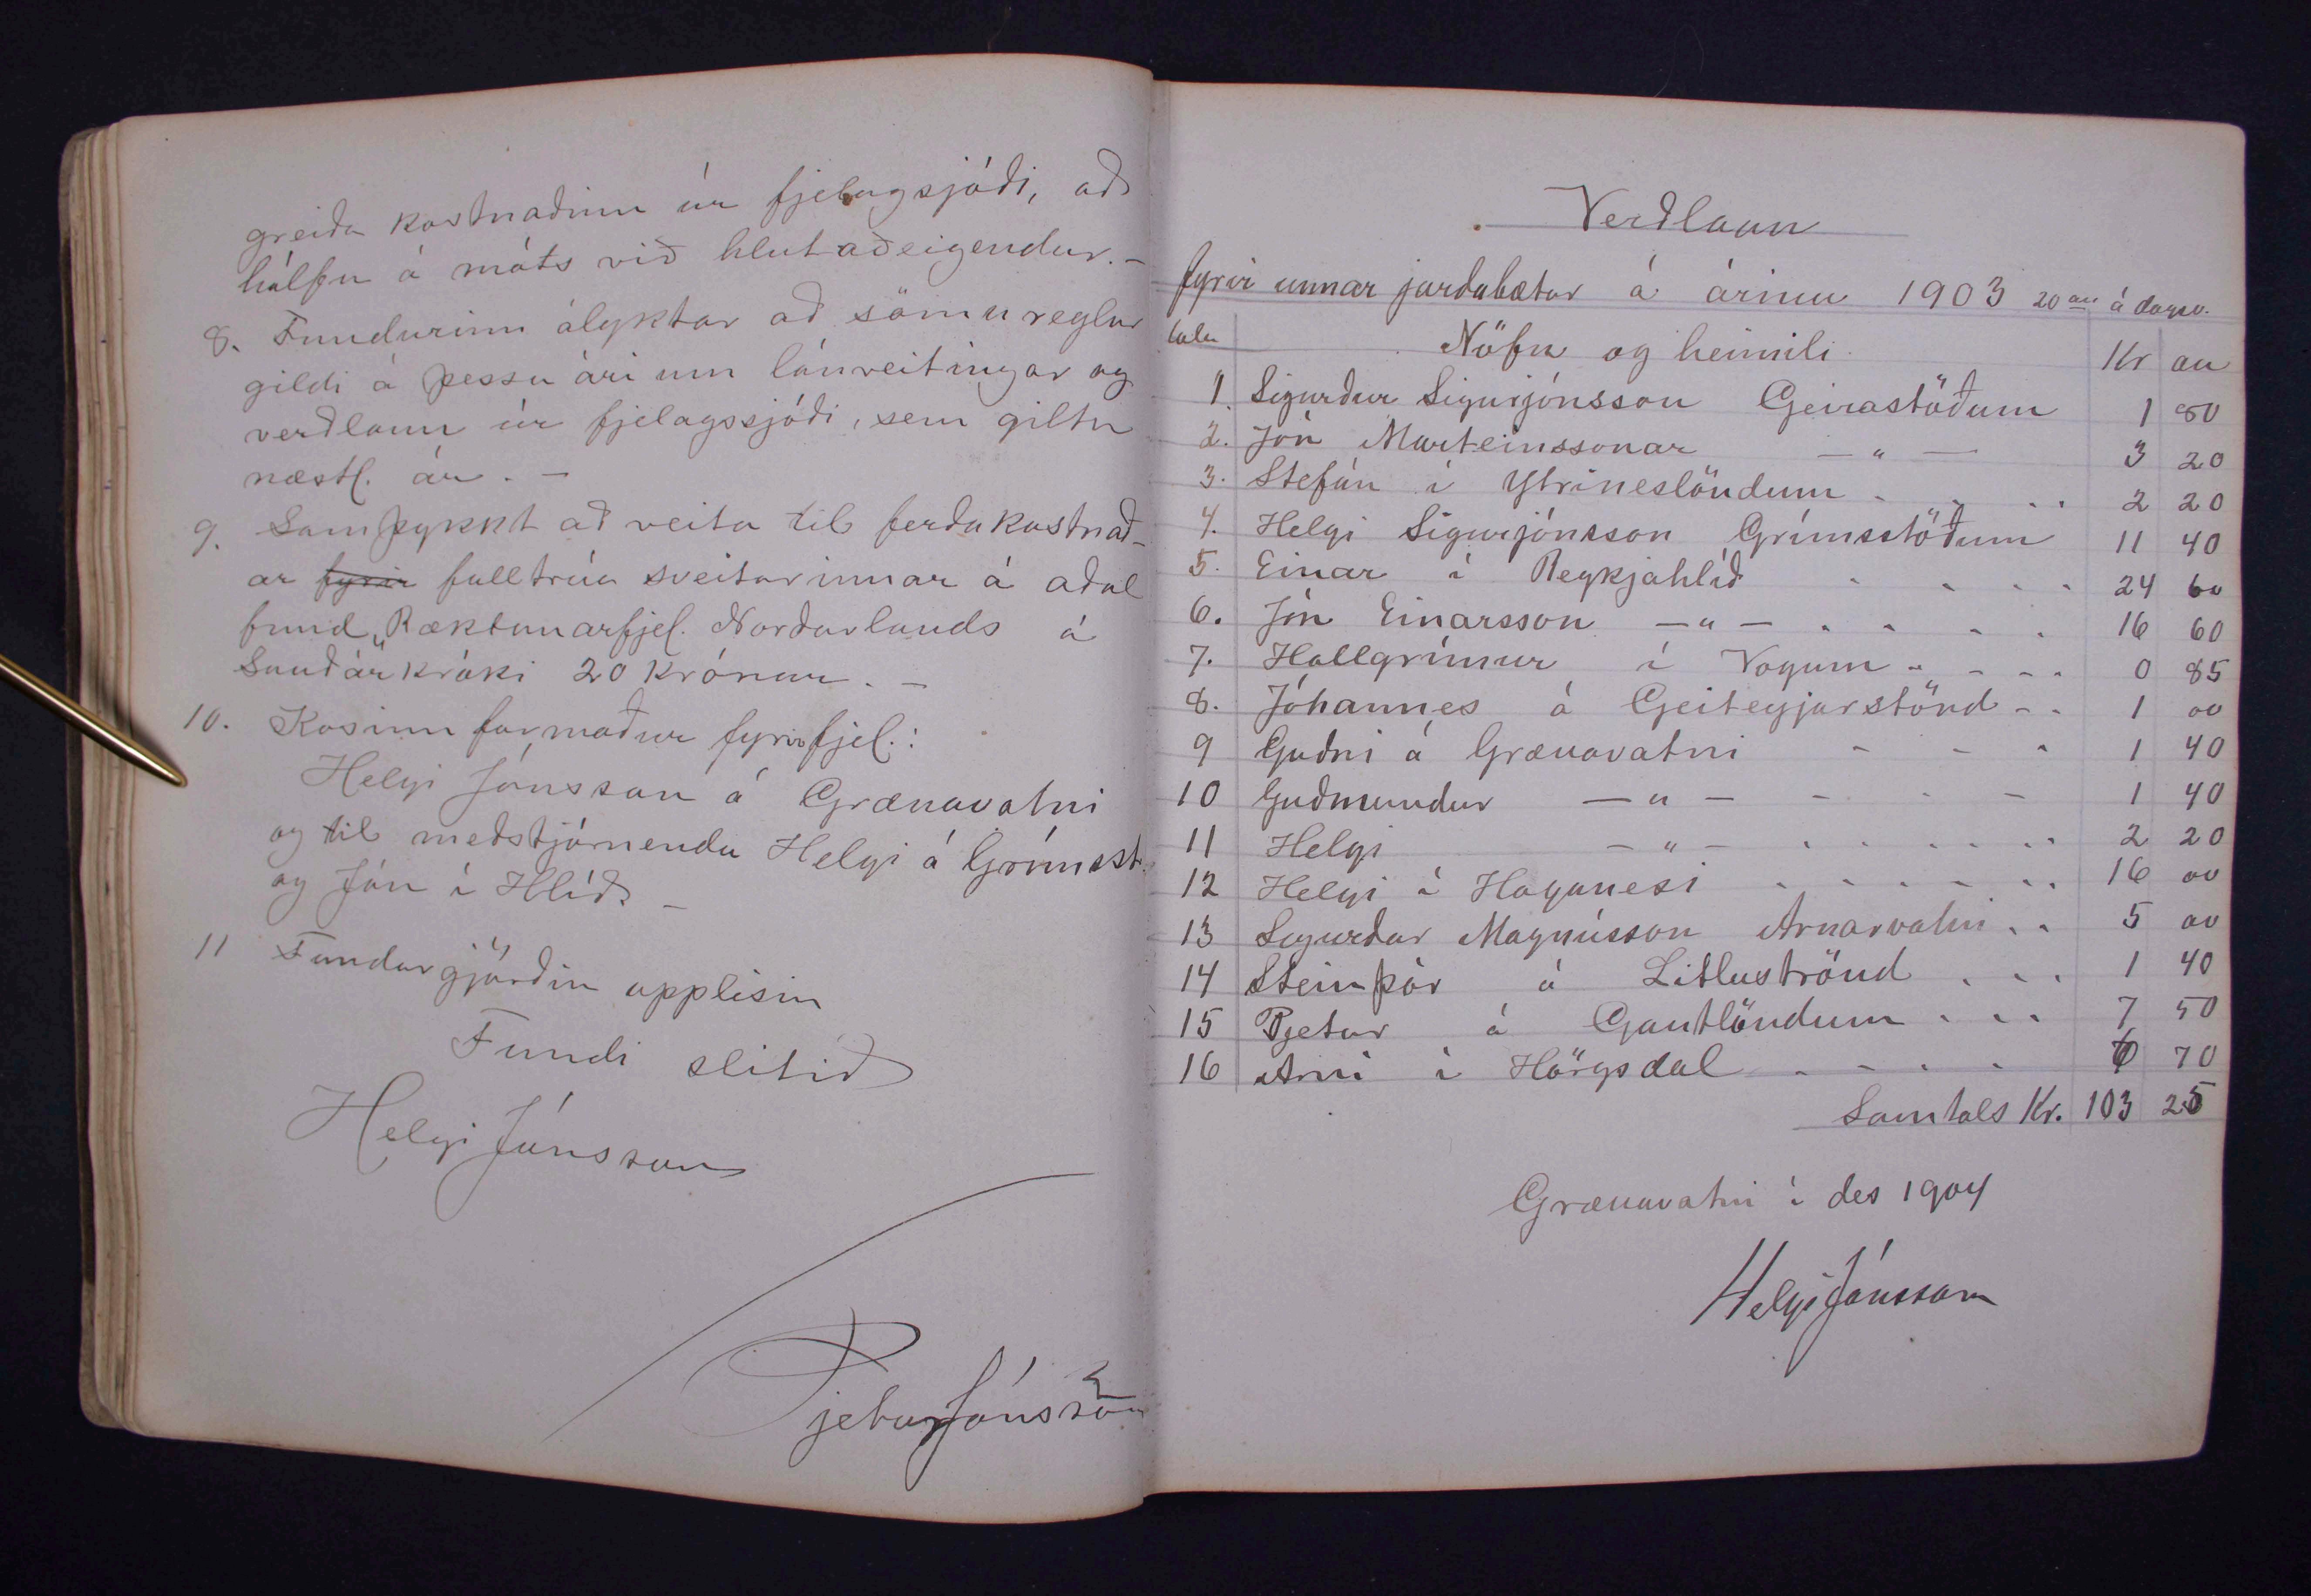 greiða kostnaðinn úr fjelagsjóði, að
hálfu á móts við hlutaðeigendur. –
8. Fundurinn ályktar að sömu reglur
gildi á þessu ári um lánveitingar og
verðlaun úr fjelagssjóði, sem giltu
næstl. ár. –
9. Samþykkt að veita til ferðakostnað-
ar fyrir fulltrúa sveitarinnar á aðal
fund „Ræktunarfjel. Norðurlands" á
Sauðárkróki 20 krónur. –
10. Kosinn formaður fyrir fjel.:
Helgi Jónsson á Grænavatni
og til meðstjórnenda Helgi á Grímsst.
og Jón í Hlíð. –
11 Fundargjörðin upplisin
Fundi slitið
Helgi Jónsson
Pjetur Jónsson
Verðlaun
fyrir unnar jarðabætur á árinu 1903 20 au á dagsv.
tala Nöfn og heimili Kr au
1. Sigurður Sigurjónsson Geirastöðum 1 80
2. Jón Marteinssonar — " — 3 20
3. Stefán í Ytrineslöndum . . . . 2 20
4. Helgi Sigurjónsson Grímsstöðum 11 40
5. Einar í Reykjahlíð . . . . 24 60
6. Jón Einarsson — " — . . . . 16 60
7. Hallgrímur í Vogum . . . . 0 85
8. Jóhannes á Geiteyjarströnd - . 1 00
9 Guðni á Grænavatni - - - 1 40
10 Guðmundur — " — - - - 1 40
11 Helgi — " — . . . . . 2 20
12 Helgi í Haganesi . . . . . . 16 00
13 Sigurður Magnússon Arnarvatni . . 5 00
14 Steinþór á Litluströnd . . . 1 40
15 Pjetur á Gautlöndum . . . 7 50
16 Arni í Hörgsdal - - . . 6 70
Samtals Kr. 103 25
Grænavatni í des 1904
Helgi Jónsson